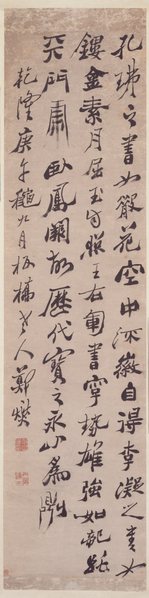 孔琳之書如散花空中流徽自得李凝之書如
鏤金素月屈玉自照王右軍書字勢雄強如龍跳
天門虎臥鳳闕故歷代寶之永以為訓
乾隆庚午穐九月板橋老人鄭燮